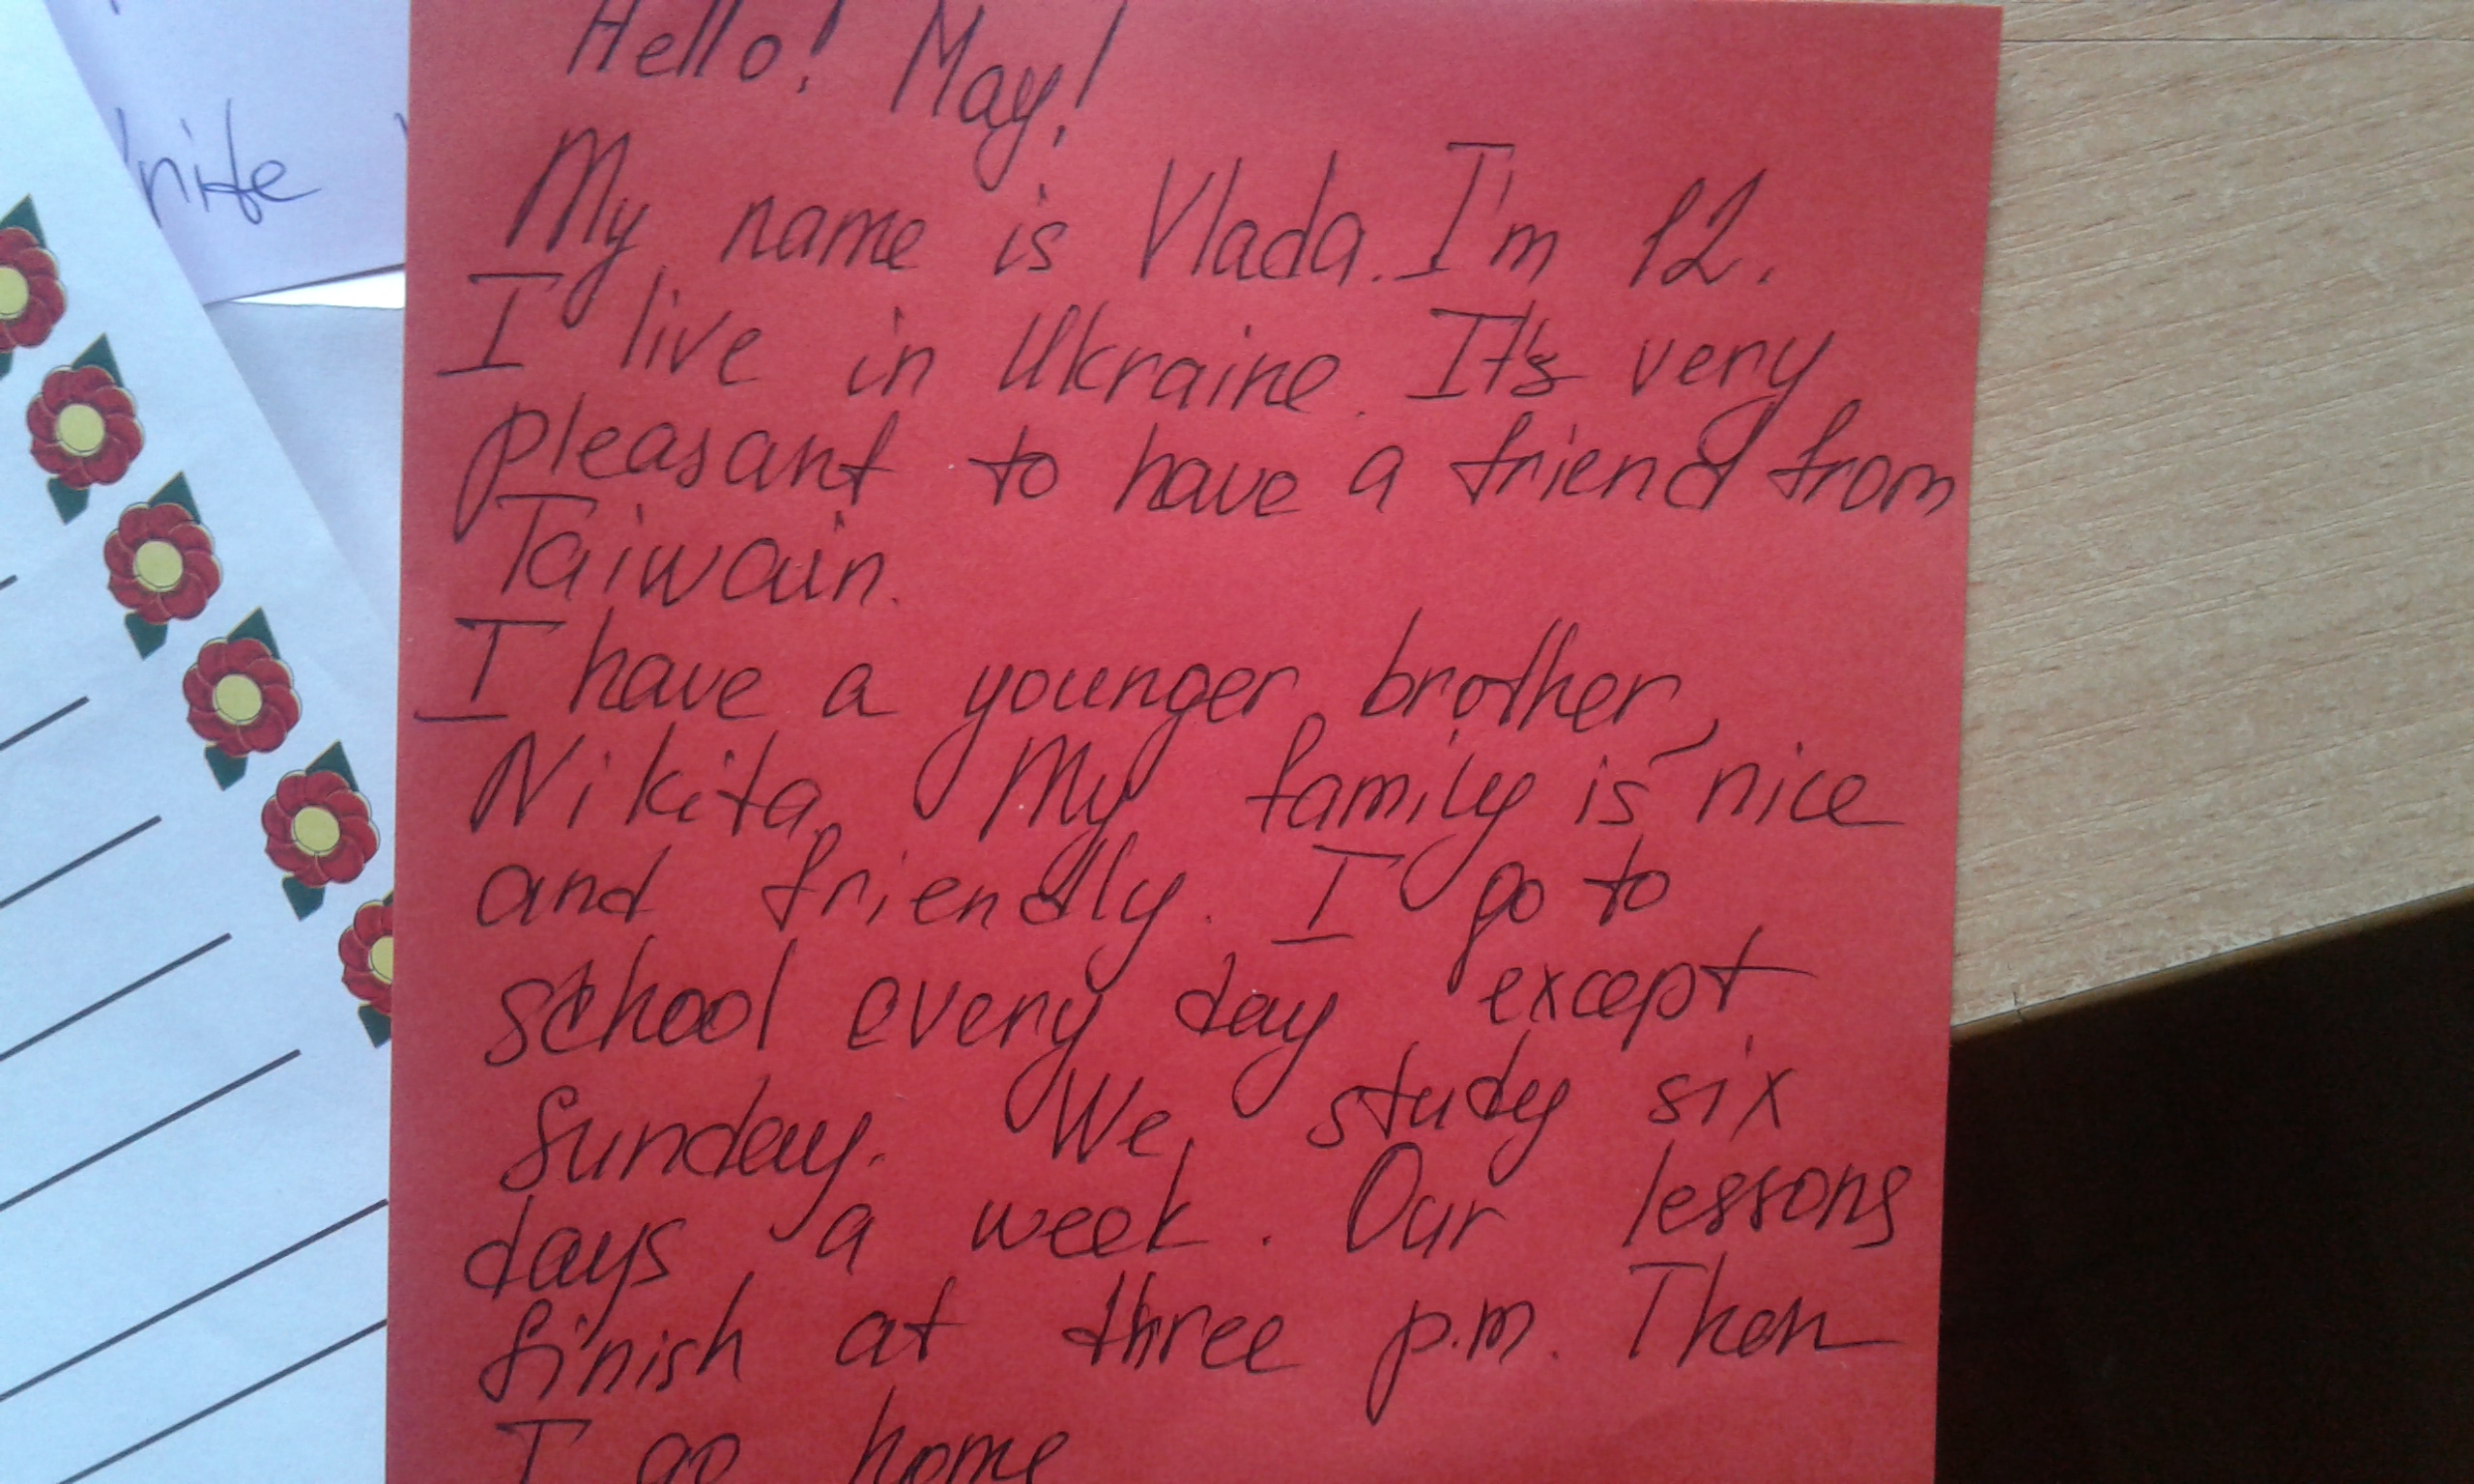 Hello! May!
My name is Vlada. I'm 12.
I live in Ukraine. It's very
pleasant to have a friend from
Taiwain.
I have a younger brother,
Nikita. My family is nice
and friendly. I go to
school every day except
Sunday. We study six
days a week. Our lessons
finish at three p.m. Then
I go home